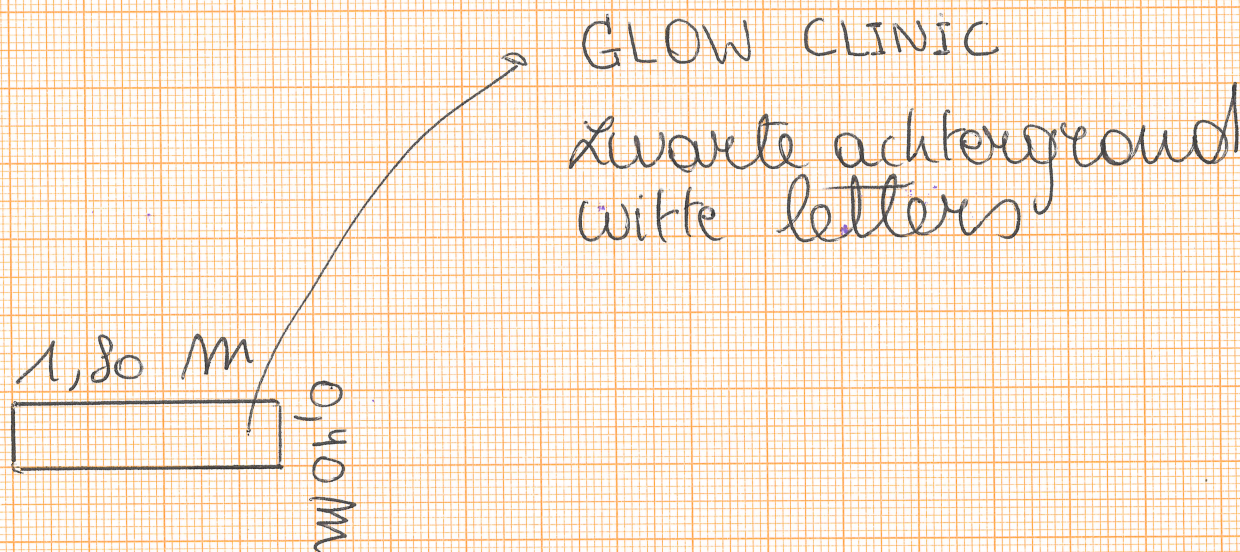 GLOW CLINIC
Zwarte achtergrond
witte letters
1,80 m
0,40 m